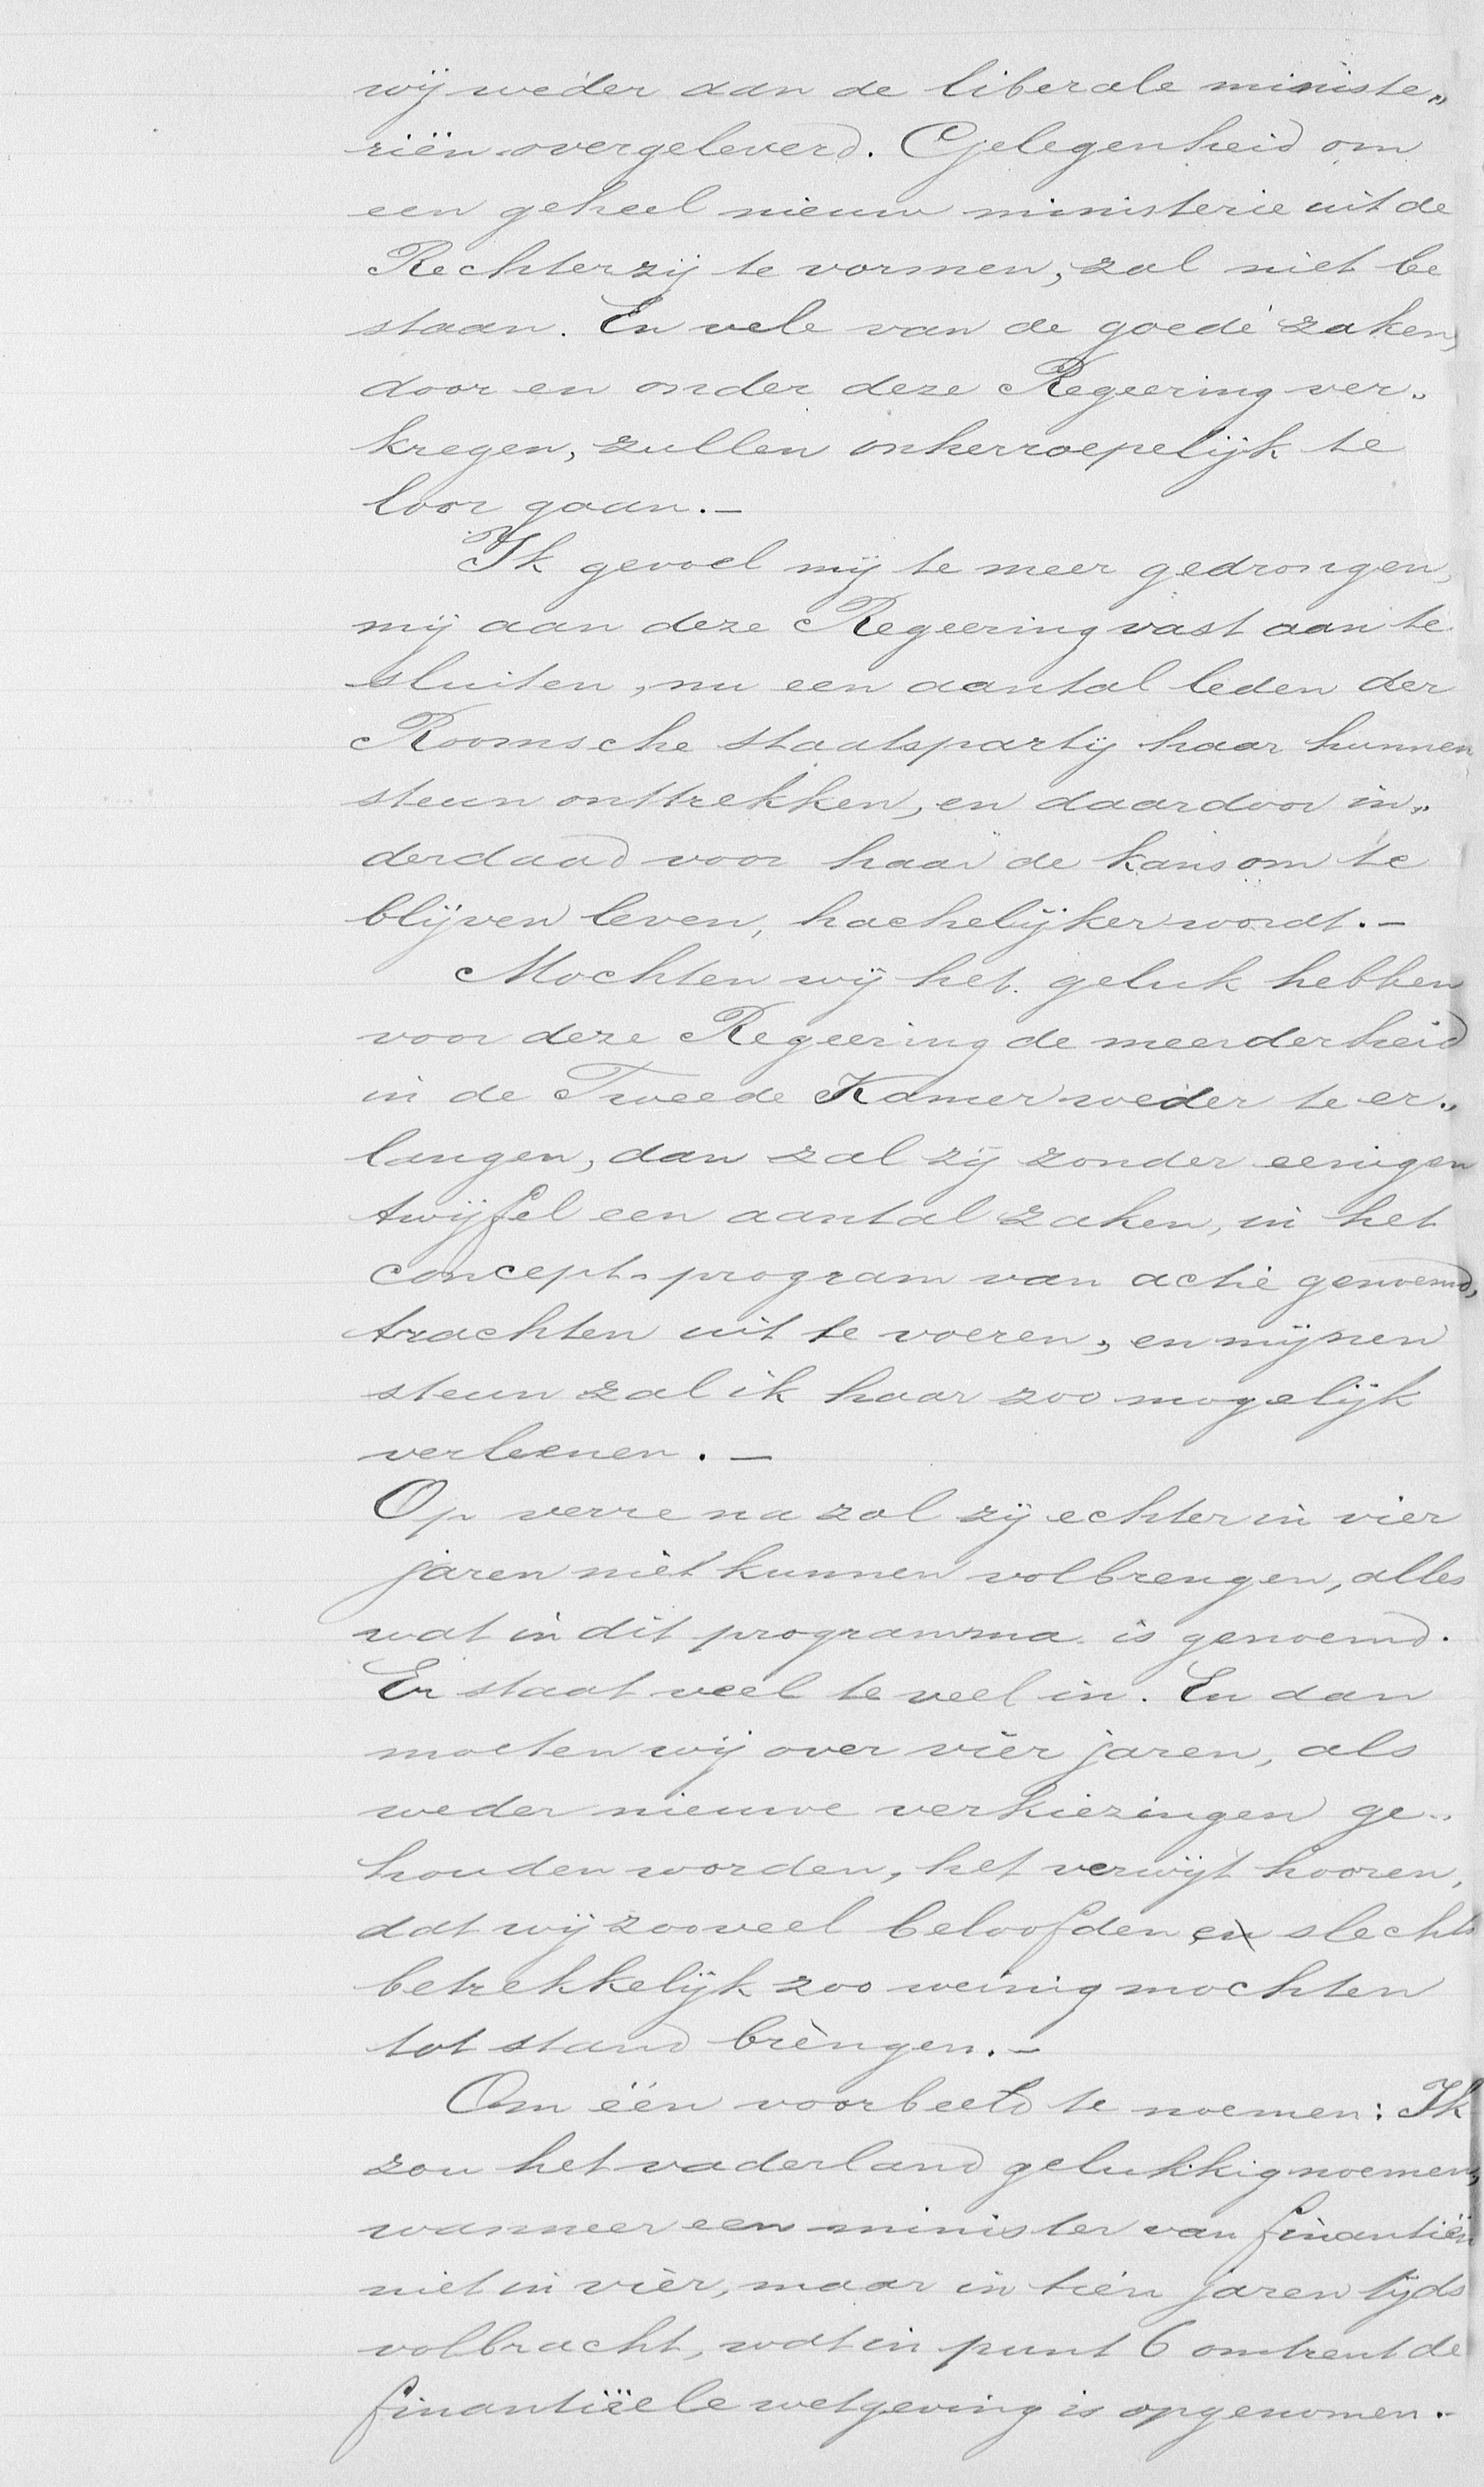 wij weder aan de liberale ministe„
riën overgeleverd. Gelegenheid om
een geheel nieuw ministerie uit de
Rechterzij te vormen, zal niet be
staan. En vele van de goede zaken,
door en onder deze Regeering ver„
kregen, zullen onherroepelijk te
loor gaan.—
Ik gevoel mij te meer gedrongen,
mij aan deze Regeering vast aan te
sluiten, nu een aantal leden der
Roomsche staatspartij haar hunnen
steun onttrekken, en daardoor in„
derdaad voor haar de kans om te
blijven leven, hachelijker wordt.—
Mochten wij het geluk hebben
voor deze Regeering de meerderheid
in de Tweede Kamer weder te er„
langen, dan zal zij zonder eenigen
twijfel een aantal zaken, in het
concept-program van actie genoemd,
trachten uit te voeren, en mijnen
steun zal ik haar zoo mogelijk
verleenen.—
Op verre na zal zij echter in vier
jaren niet kunnen volbrengen, alles
wat in dit programma is genoemd.
Er staat veel te veel in. En dan
moeten wij over vier jaren, als
weder nieuwe verkiezingen ge„
houden worden, het verwijt hooren,
dat wij zooveel beloofden en slechts
betrekkelijk zoo weinig mochten
tot stand brengen.—
Om één voorbeeld te noemen: Ik
zou het vaderland gelukkig noemen,
wanneer een minister van finantiën
niet in vier, maar in tien jaren tijds
volbracht, wat in punt 6 omtrent de
finantiëele wetgeving is opgenomen.—